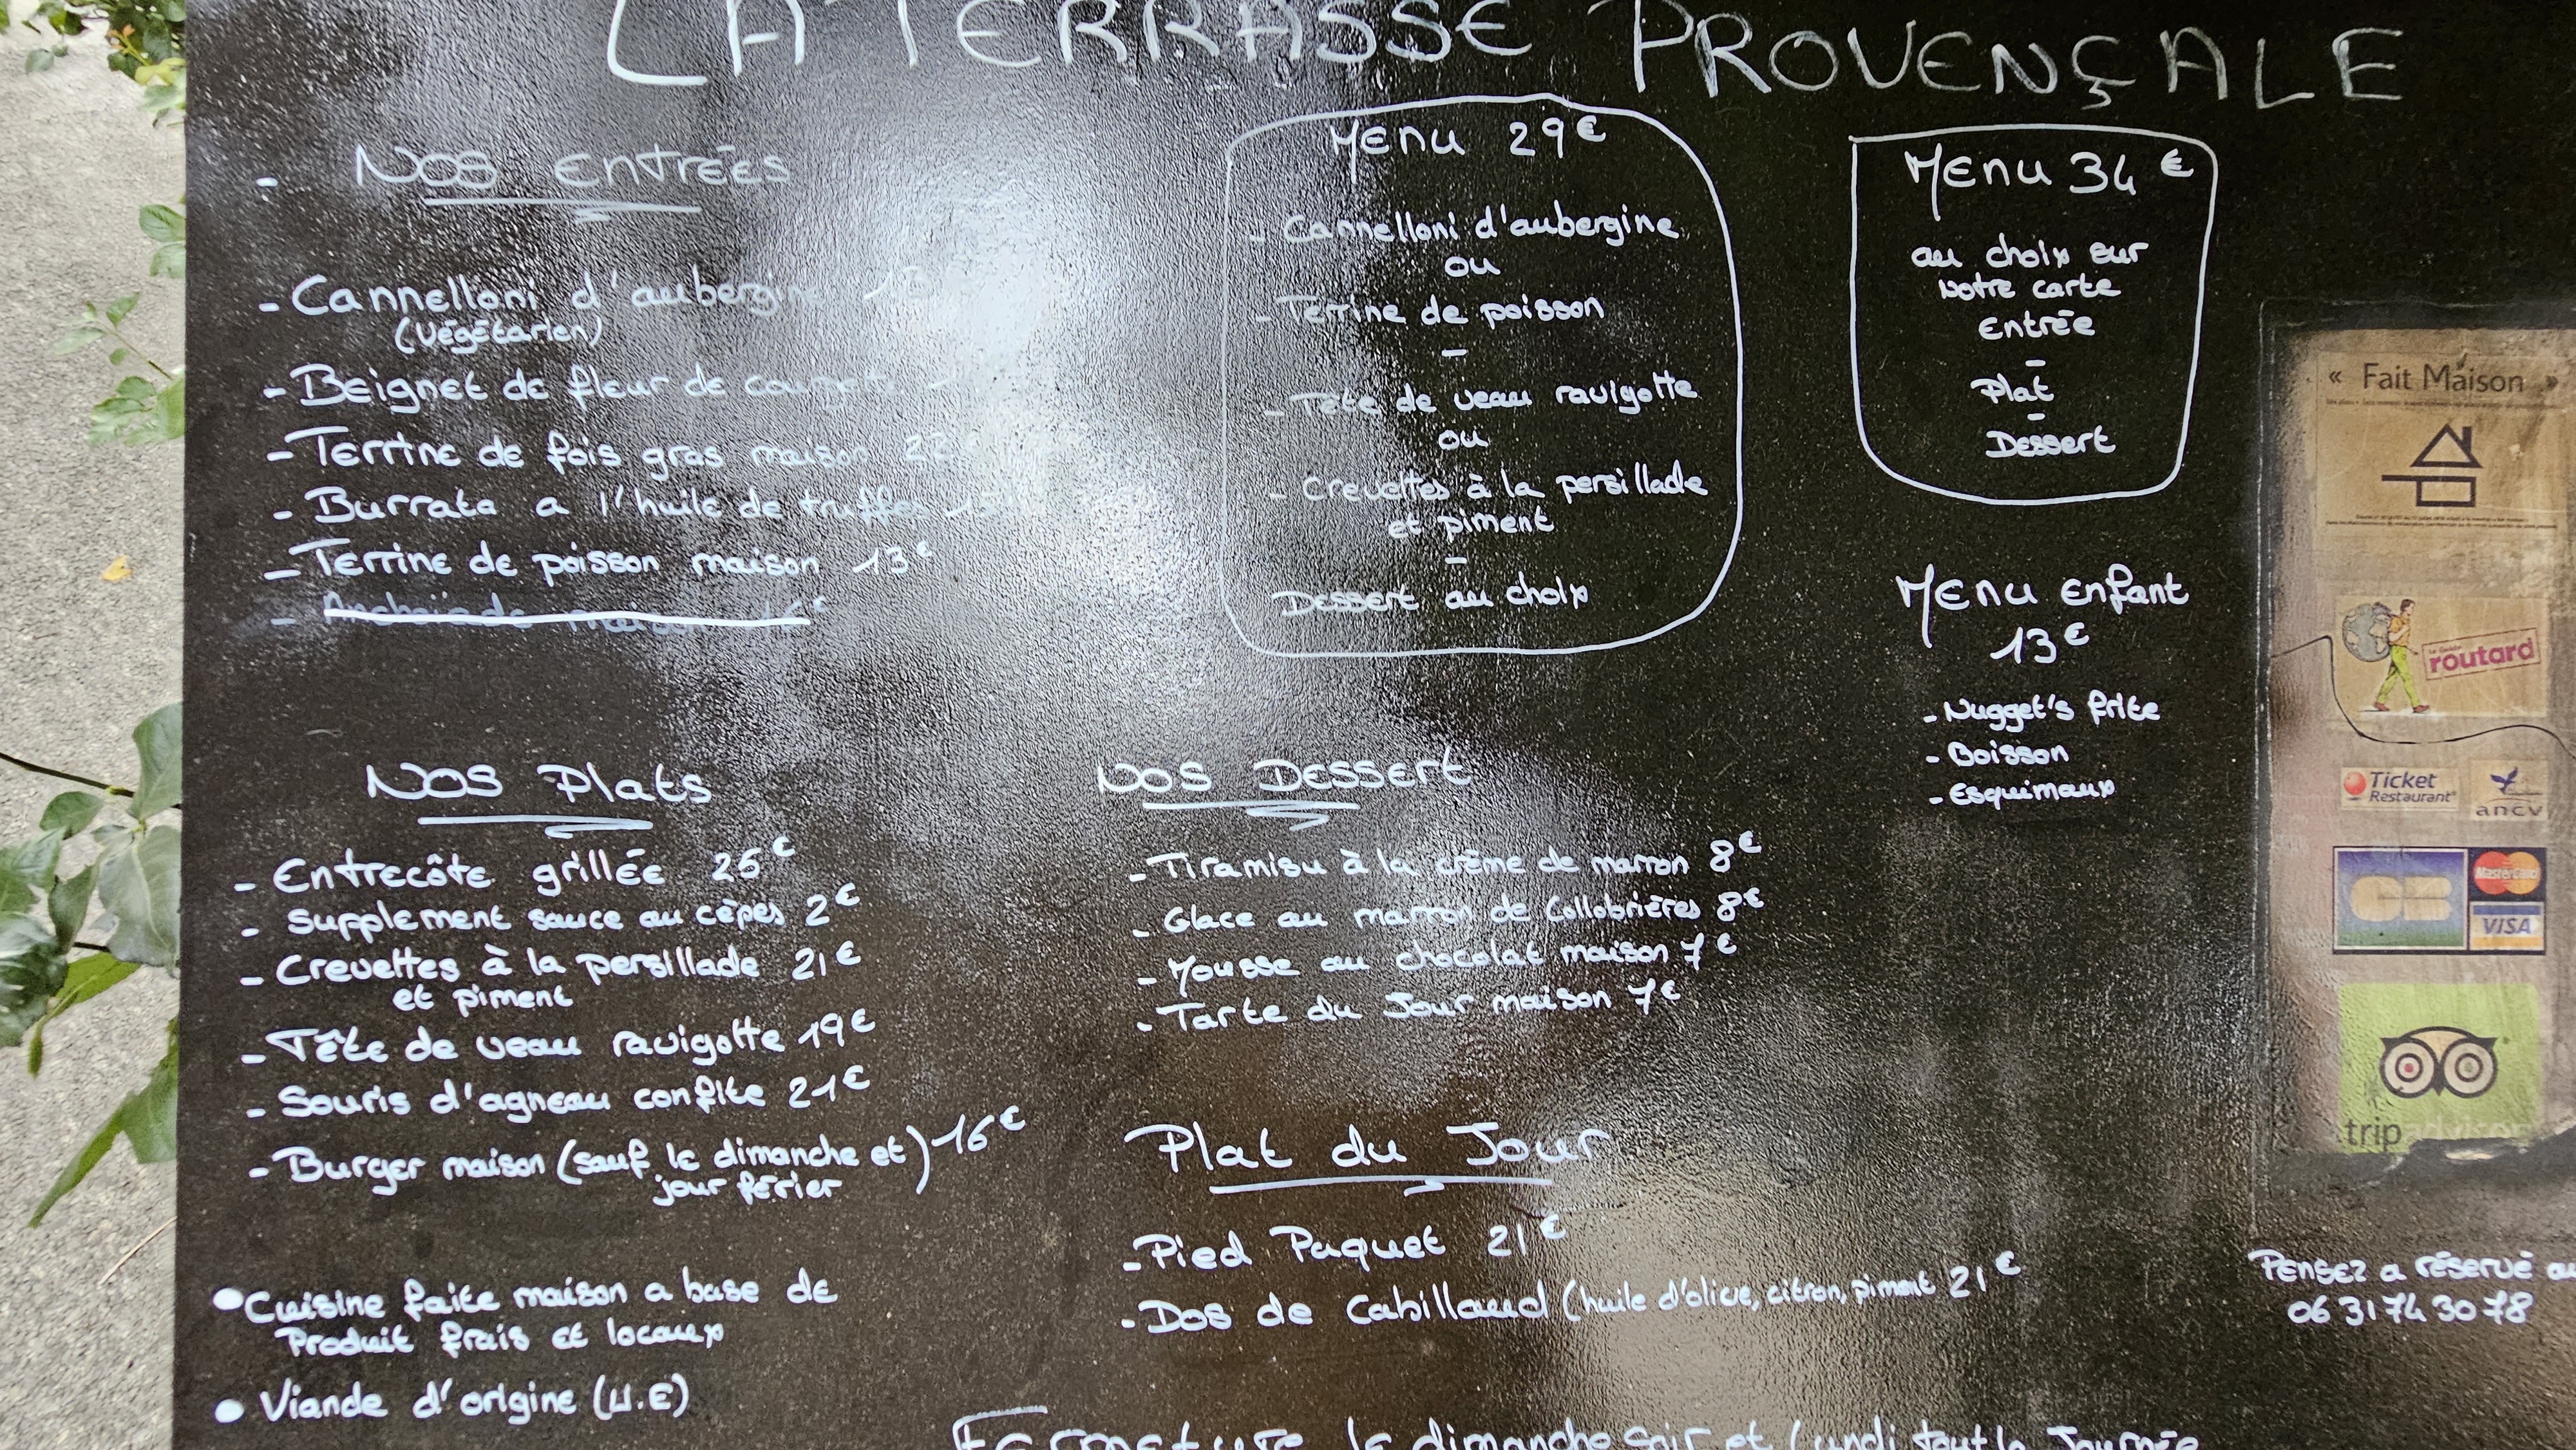 LA TERRASSE PROVENÇALE
- NOS Entrées
- Cannelloni d'aubergine
(végétarien)
- Beignet de fleur de
- Terrine de fois gras maison 22
- Burrata a l'huile de truffe
- Terrine de poisson maison 13€
Menu 29€
- Cannelloni d'aubergine
ou
- Terrine de poisson
-
- Tête de veau ravigotte
ou
- Crevettes à la persillade
et piment
-
Dessert au choix
Menu 34€
au choix sur
Notre carte
Entrée
-
Plat
-
Dessert
Menu enfant
13€
- Nugget's frite
- Boisson
- Esquimaux
NOS Plats
- Entrecôte grillée 26€
- Supplement sauce au cèpes 2€
- Crevettes à la persillade 21€
et piment
- Tête de veau ravigotte 19€
- Souris d'agneau confite 21€
- Burger maison (sauf le dimanche et) 16€
jour férier
• Cuisine faite maison a base de
Produit frais et locaux
• Viande d'origine (U.E)
NOS Dessert
- Tiramisu à la crème de marron 8€
- Glace au marron de Collobrières 8€
- Mousse au chocolat maison 7€
- Tarte du Jour maison 7€
Plat du Jour
- Pied Paquet 21€
- Dos de Cabillaud (huile d'olive, citron, piment 21€
Fermeture le dimanche soir et lundi tout la Journée
« Fait Maison »
routard
Ticket
Restaurant
ancv
CB
MasterCard
VISA
tripadvisor
Pensez a réservé au
06 31 74 30 78